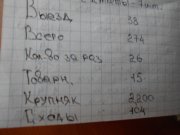 Выезд 33
Всего 274
Кол-во за раз 26
Товарн. 15
Крупняк 2200
Сходы 104